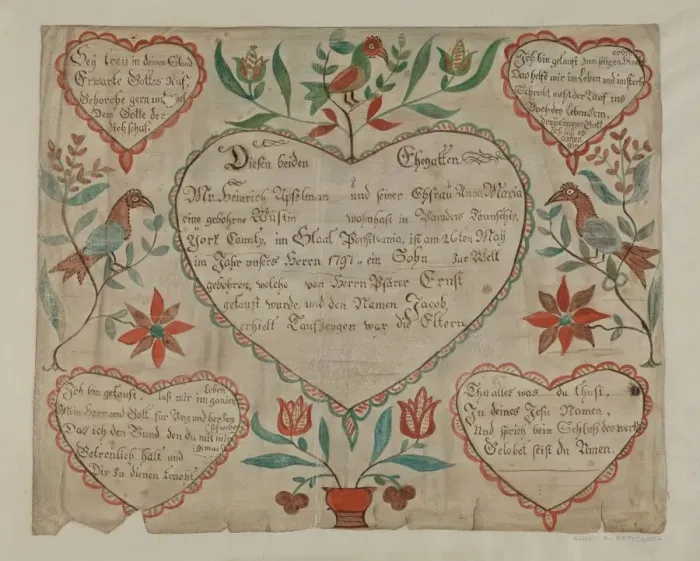 Sey treu in deinem Glaub
Erwarte Gottes Ruf,
Gehorche gern und
Dem Gotte der
dich schuf.
Ich bin getauft zum seligen
Das hilft mir im leben und im sterb
schreibt nach der Tauf ins
Buch des lebens ein,
Gott
Diesen beiden Ehegatten
Mr. Heinrich Apfelman und seiner Ehfrau Anna Maria
eine gebohrne Wüstin wohnhaft in Township,
York Caunty, im Staat Pensilvania, ist am 26ten May
im Jahr unsers Herrn 1797 ein Sohn zur Welt
gebohren, welche von Herrn Pfarer Ernst
getauft wurde, und den Namen Jacob,
erhielt Taufzeugen war die Eltern
Ich bin getauft, laß mir im ganzen Leben
Mein Herr und Gott für Aug und herzen
Das ich den Bund, den du mit mir
Getreulich halt und
Dir zu dienen tracht
Thu alles was du thust,
In deines Jesu Namen,
Und sprich beim Schluß des werks
Gelobet seist du Amen.